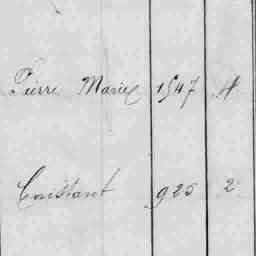 Pierre Marie 1547 4
Constant 925 2